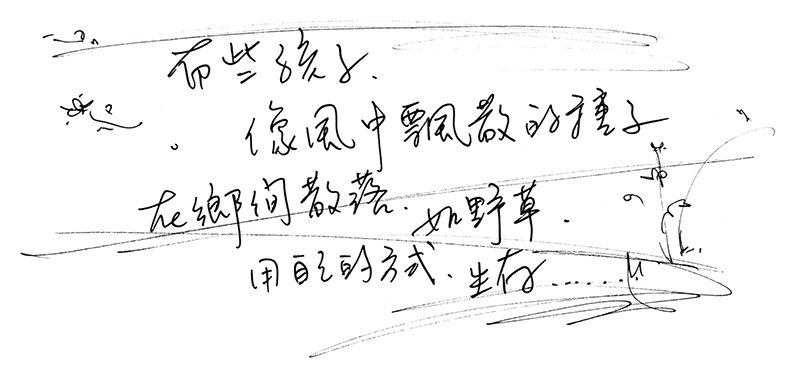 有些孩子、
像風中飄散的種子
在鄉間散落、如野草、
用自己的方式、生存......